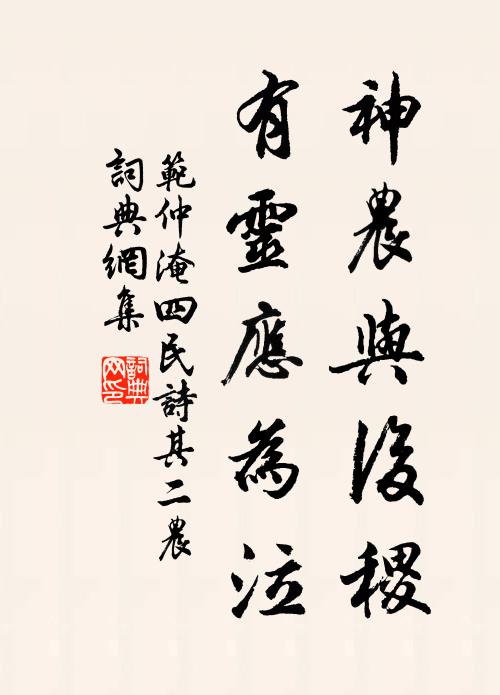 神農與後稷
有靈應為泣
範仲淹四民詩其二農
詞典網集
詞典网印